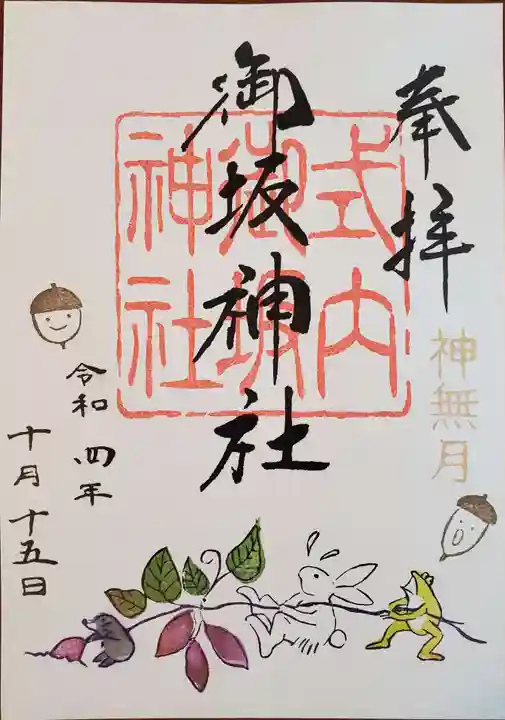 奉拝
神無月
式内
御坂
神社
御坂神社
令和四年
十月十五日